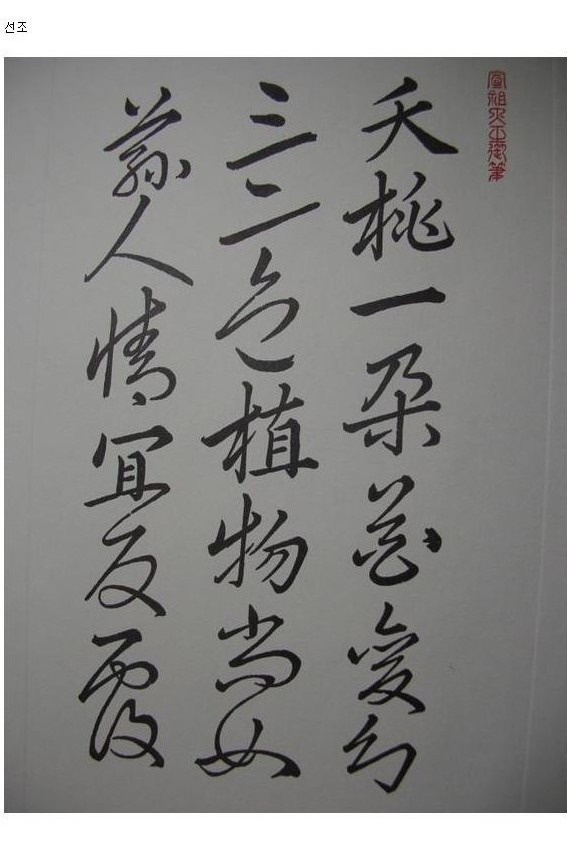 선조
宣祖大王御筆
夭桃一朶花變幻
三二色植物尚如
茲人情宜反覆